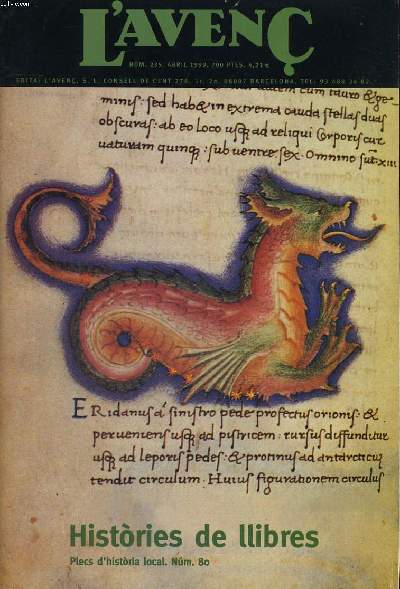 L'AVENÇ
NÚM. 235. ABRIL 1999. 700 PTES. 4,21 €
EDITA: L'AVENÇ, S. L. CONSELL DE CENT 278, 1r, 2a. 08007 BARCELONA. TEL: 93
cum tauro & ge-
minis: sed hab& in extrema cauda stellas duas
obscuras: ab eo loco usq ad reliqui corporis cur
uaturam quinq: sub uentre sex. Omnino sūt xiii
ERidanus a sinistro pede profectus orionis: &
perueniens usq ad pistricem: rursus diffunditur
usq ad leporis pedes: & protinus ad antarcticū
tendit circulum. Huius figurationem circulus
Històries de llibres
Plecs d'història local. Núm. 80